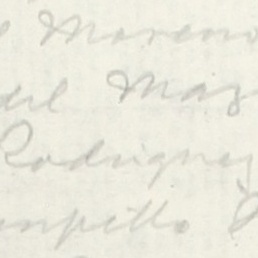 Moreno
del Maz
Rodriguez
mpillo